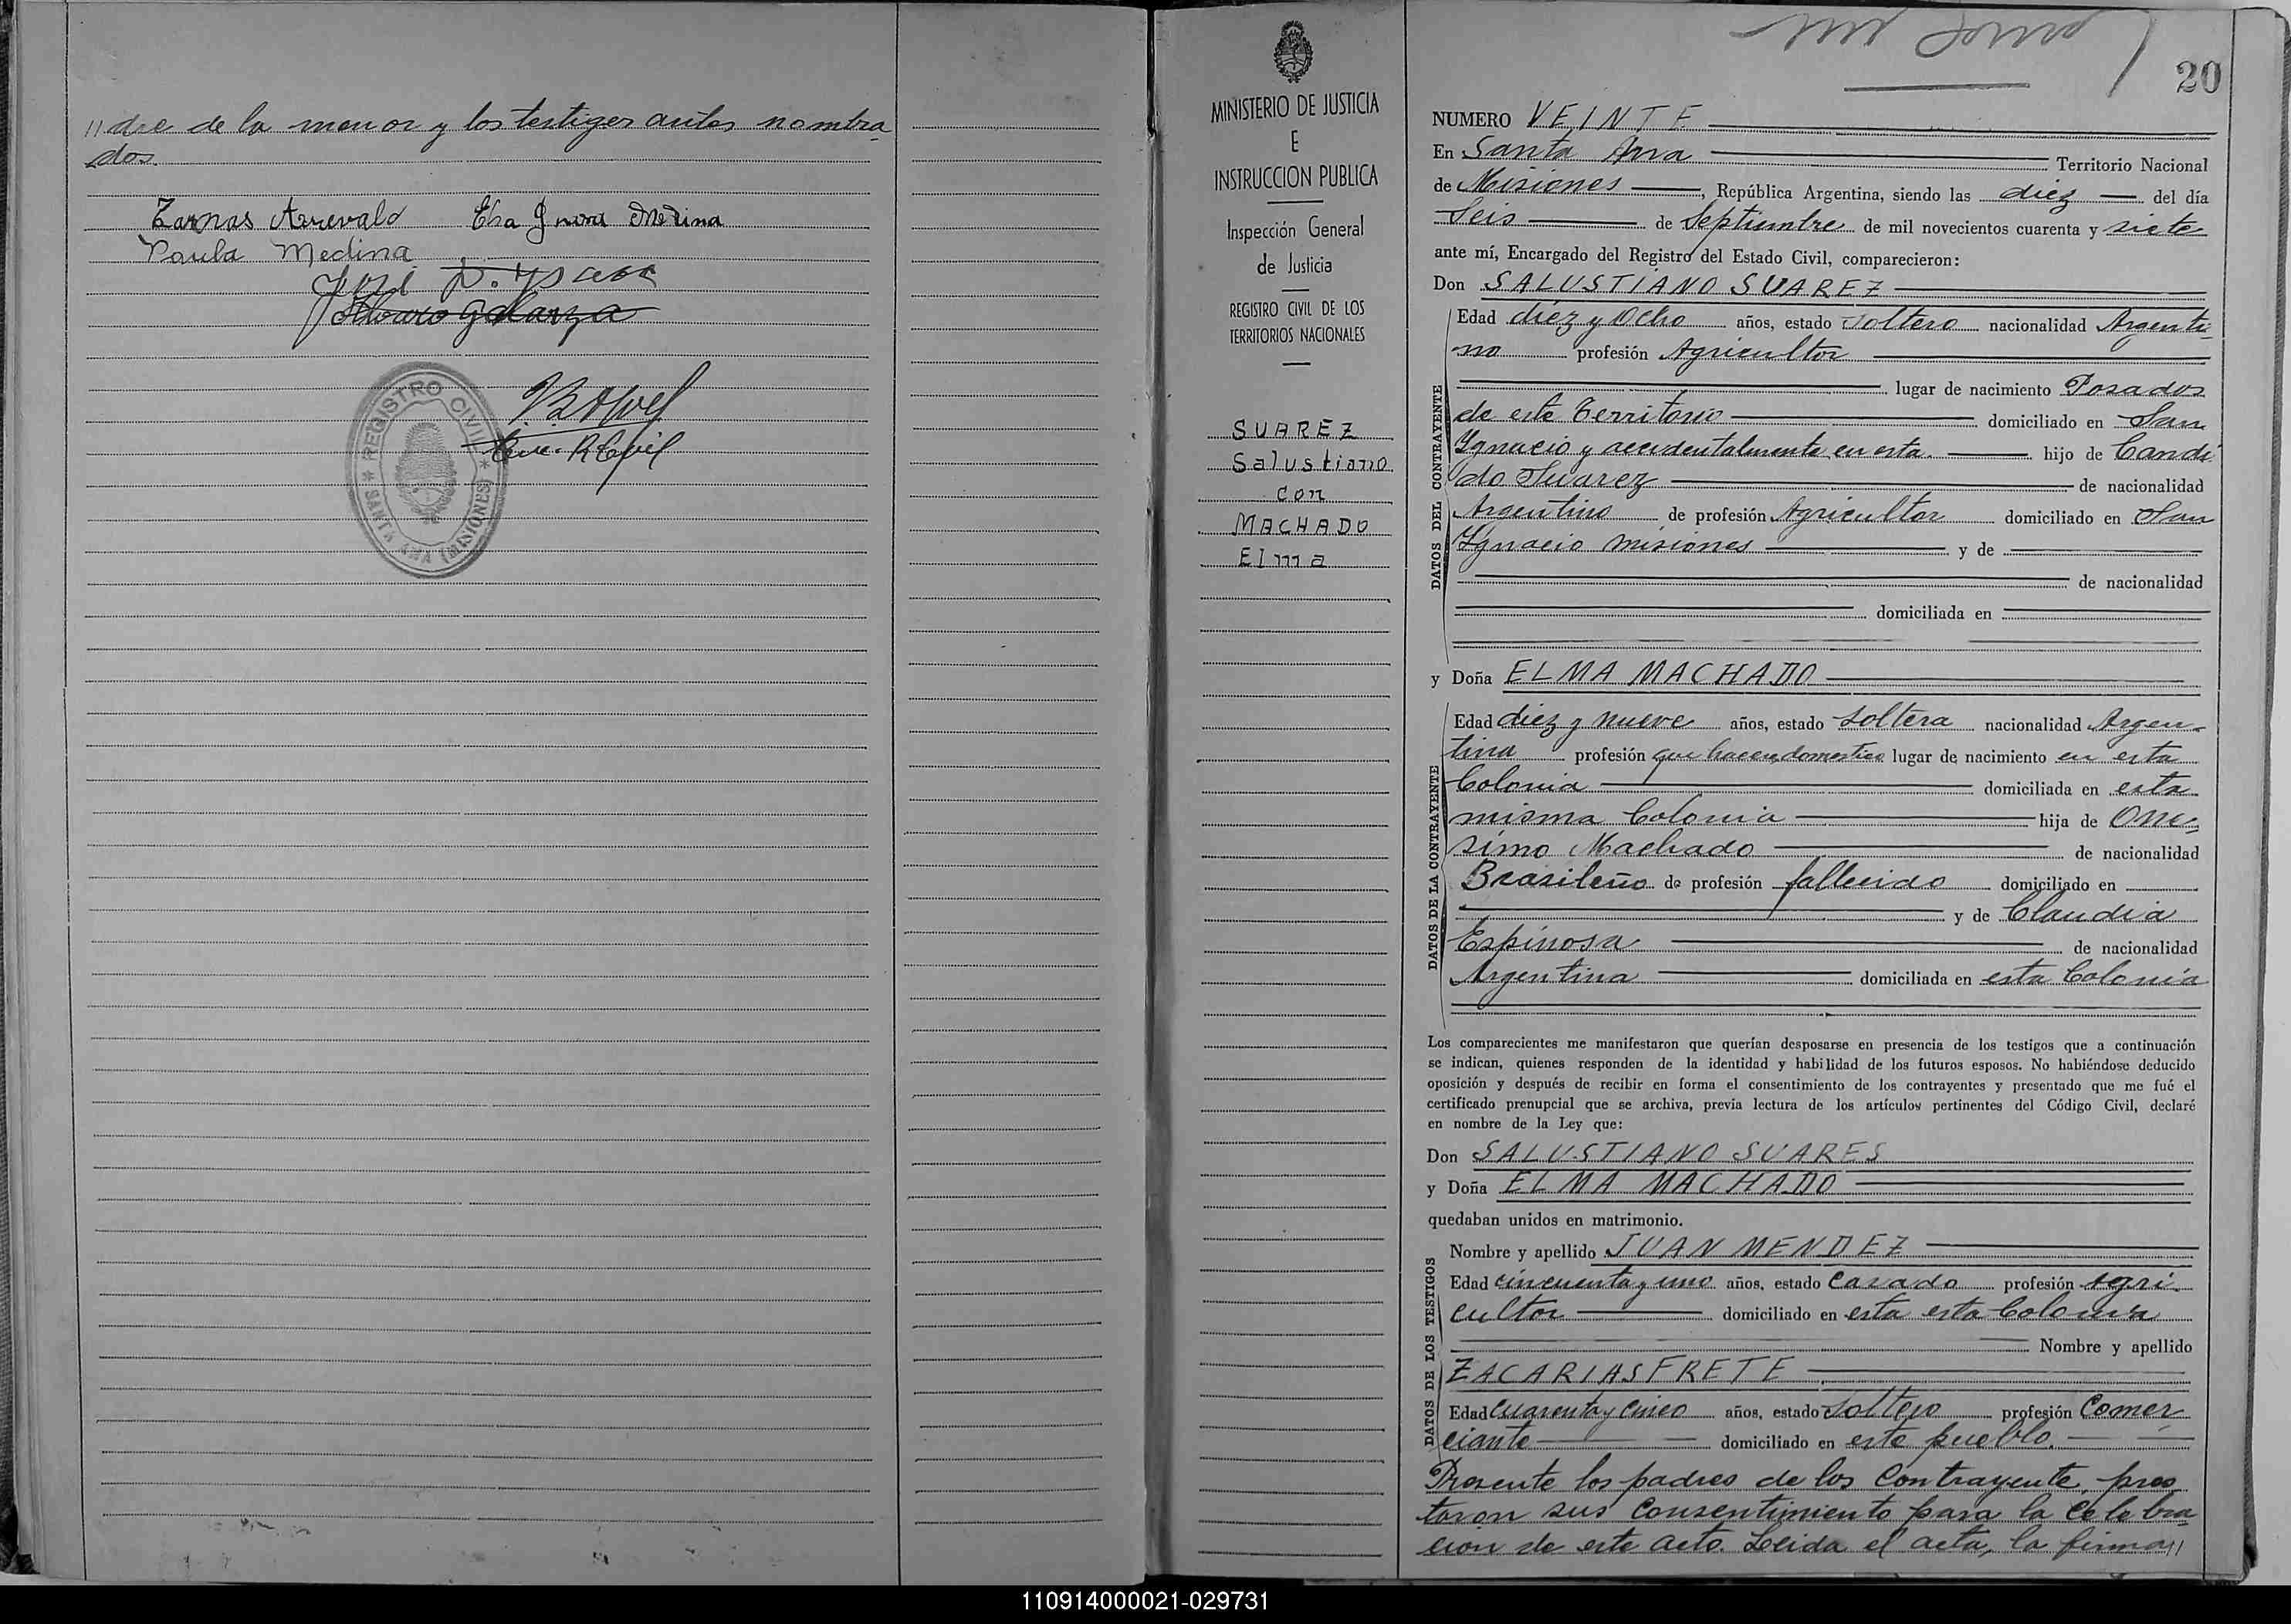 //dre de la menor y los testigos antes nombra
dos.
Arrevalo Elsa Medina
Paula Medina
José
Alvaro Galarza
REGISTRO CIVIL
SANTA ANA (MISIONES)
MINISTERIO DE JUSTICIA
E
INSTRUCCION PUBLICA
Inspección General
de Justicia
REGISTRO CIVIL DE LOS
TERRITORIOS NACIONALES
SUAREZ
Salustiano
con
MACHADO
Elma
20
NUMERO VEINTE
En Santa Ana Territorio Nacional
de Misiones, República Argentina, siendo las diez del día
Seis de Septiembre de mil novecientos cuarenta y siete
ante mí, Encargado del Registro del Estado Civil, comparecieron:
Don SALUSTIANO SUAREZ
DATOS DEL CONTRAYENTE
Edad diez y ocho años, estado soltero nacionalidad Argenti-
no profesión Agricultor
lugar de nacimiento Posadas
de este Territorio domiciliado en San
Ignacio y accidentalmente en esta. hijo de Candi
do Suarez de nacionalidad
Argentino de profesión Agricultor domiciliado en San
Ignacio Misiones y de
de nacionalidad
domiciliada en
y Doña ELMA MACHADO
DATOS DE LA CONTRAYENTE
Edad diez y nueve años, estado Soltera nacionalidad Argen-
tina profesión que haceres domestico lugar de nacimiento en esta
Colonia domiciliada en esta
misma Colonia hija de One-
simo Machado de nacionalidad
Brasileño de profesión fallecido domiciliado en
y de Claudia
Espinosa de nacionalidad
Argentina domiciliada en esta Colonia
Los comparecientes me manifestaron que querían desposarse en presencia de los testigos que a continuación
se indican, quienes responden de la identidad y habilidad de los futuros esposos. No habiéndose deducido
oposición y después de recibir en forma el consentimiento de los contrayentes y presentado que me fué el
certificado prenupcial que se archiva, previa lectura de los artículos pertinentes del Código Civil, declaré
en nombre de la Ley que:
Don SALUSTIANO SUARES
y Doña ELMA MACHADO
quedaban unidos en matrimonio.
DATOS DE LOS TESTIGOS
Nombre y apellido JUAN MENDEZ
Edad cincuenta y uno años, estado Casado profesión Agri-
cultor domiciliado en esta esta Colonia
Nombre y apellido
ZACARIAS FRETE
Edad cuarenta y cinco años, estado soltero profesión Comer
ciante domiciliado en este pueblo.
Presente los padres de los Contrayente, pres
taron sus Consentimiento para la Celebra
cion de este acto. Leida el acta, la firma//
110914000021-029731